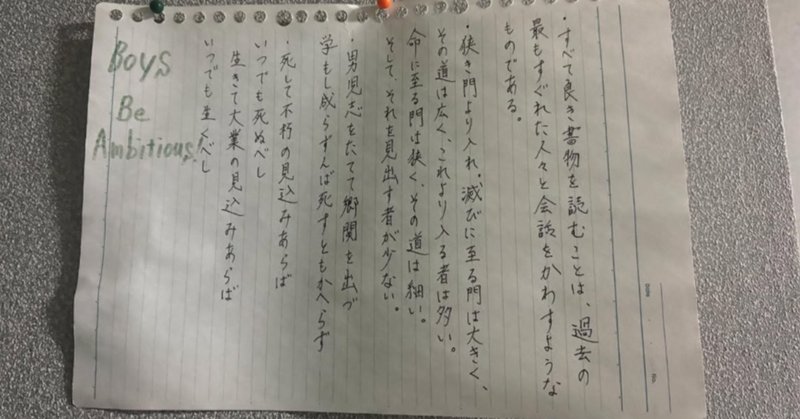 ・すべて良き書物を読むことは、過去の
最もすぐれた人々と会話をかわすような
ものである。
・狭き門より入れ。滅びに至る門は大きく、
その道は広く、これより入る者は多い。
命に至る門は狭く、その道は細い。
そして、それを見出す者が少ない。
・男児志をたてて郷関を出づ
学もし成らずんば死すともかへらず
・死して不朽の見込みあらば
いつでも死ぬべし
生きて大業の見込みあらば
いつでも生くべし
Boys
Be
Ambitious!